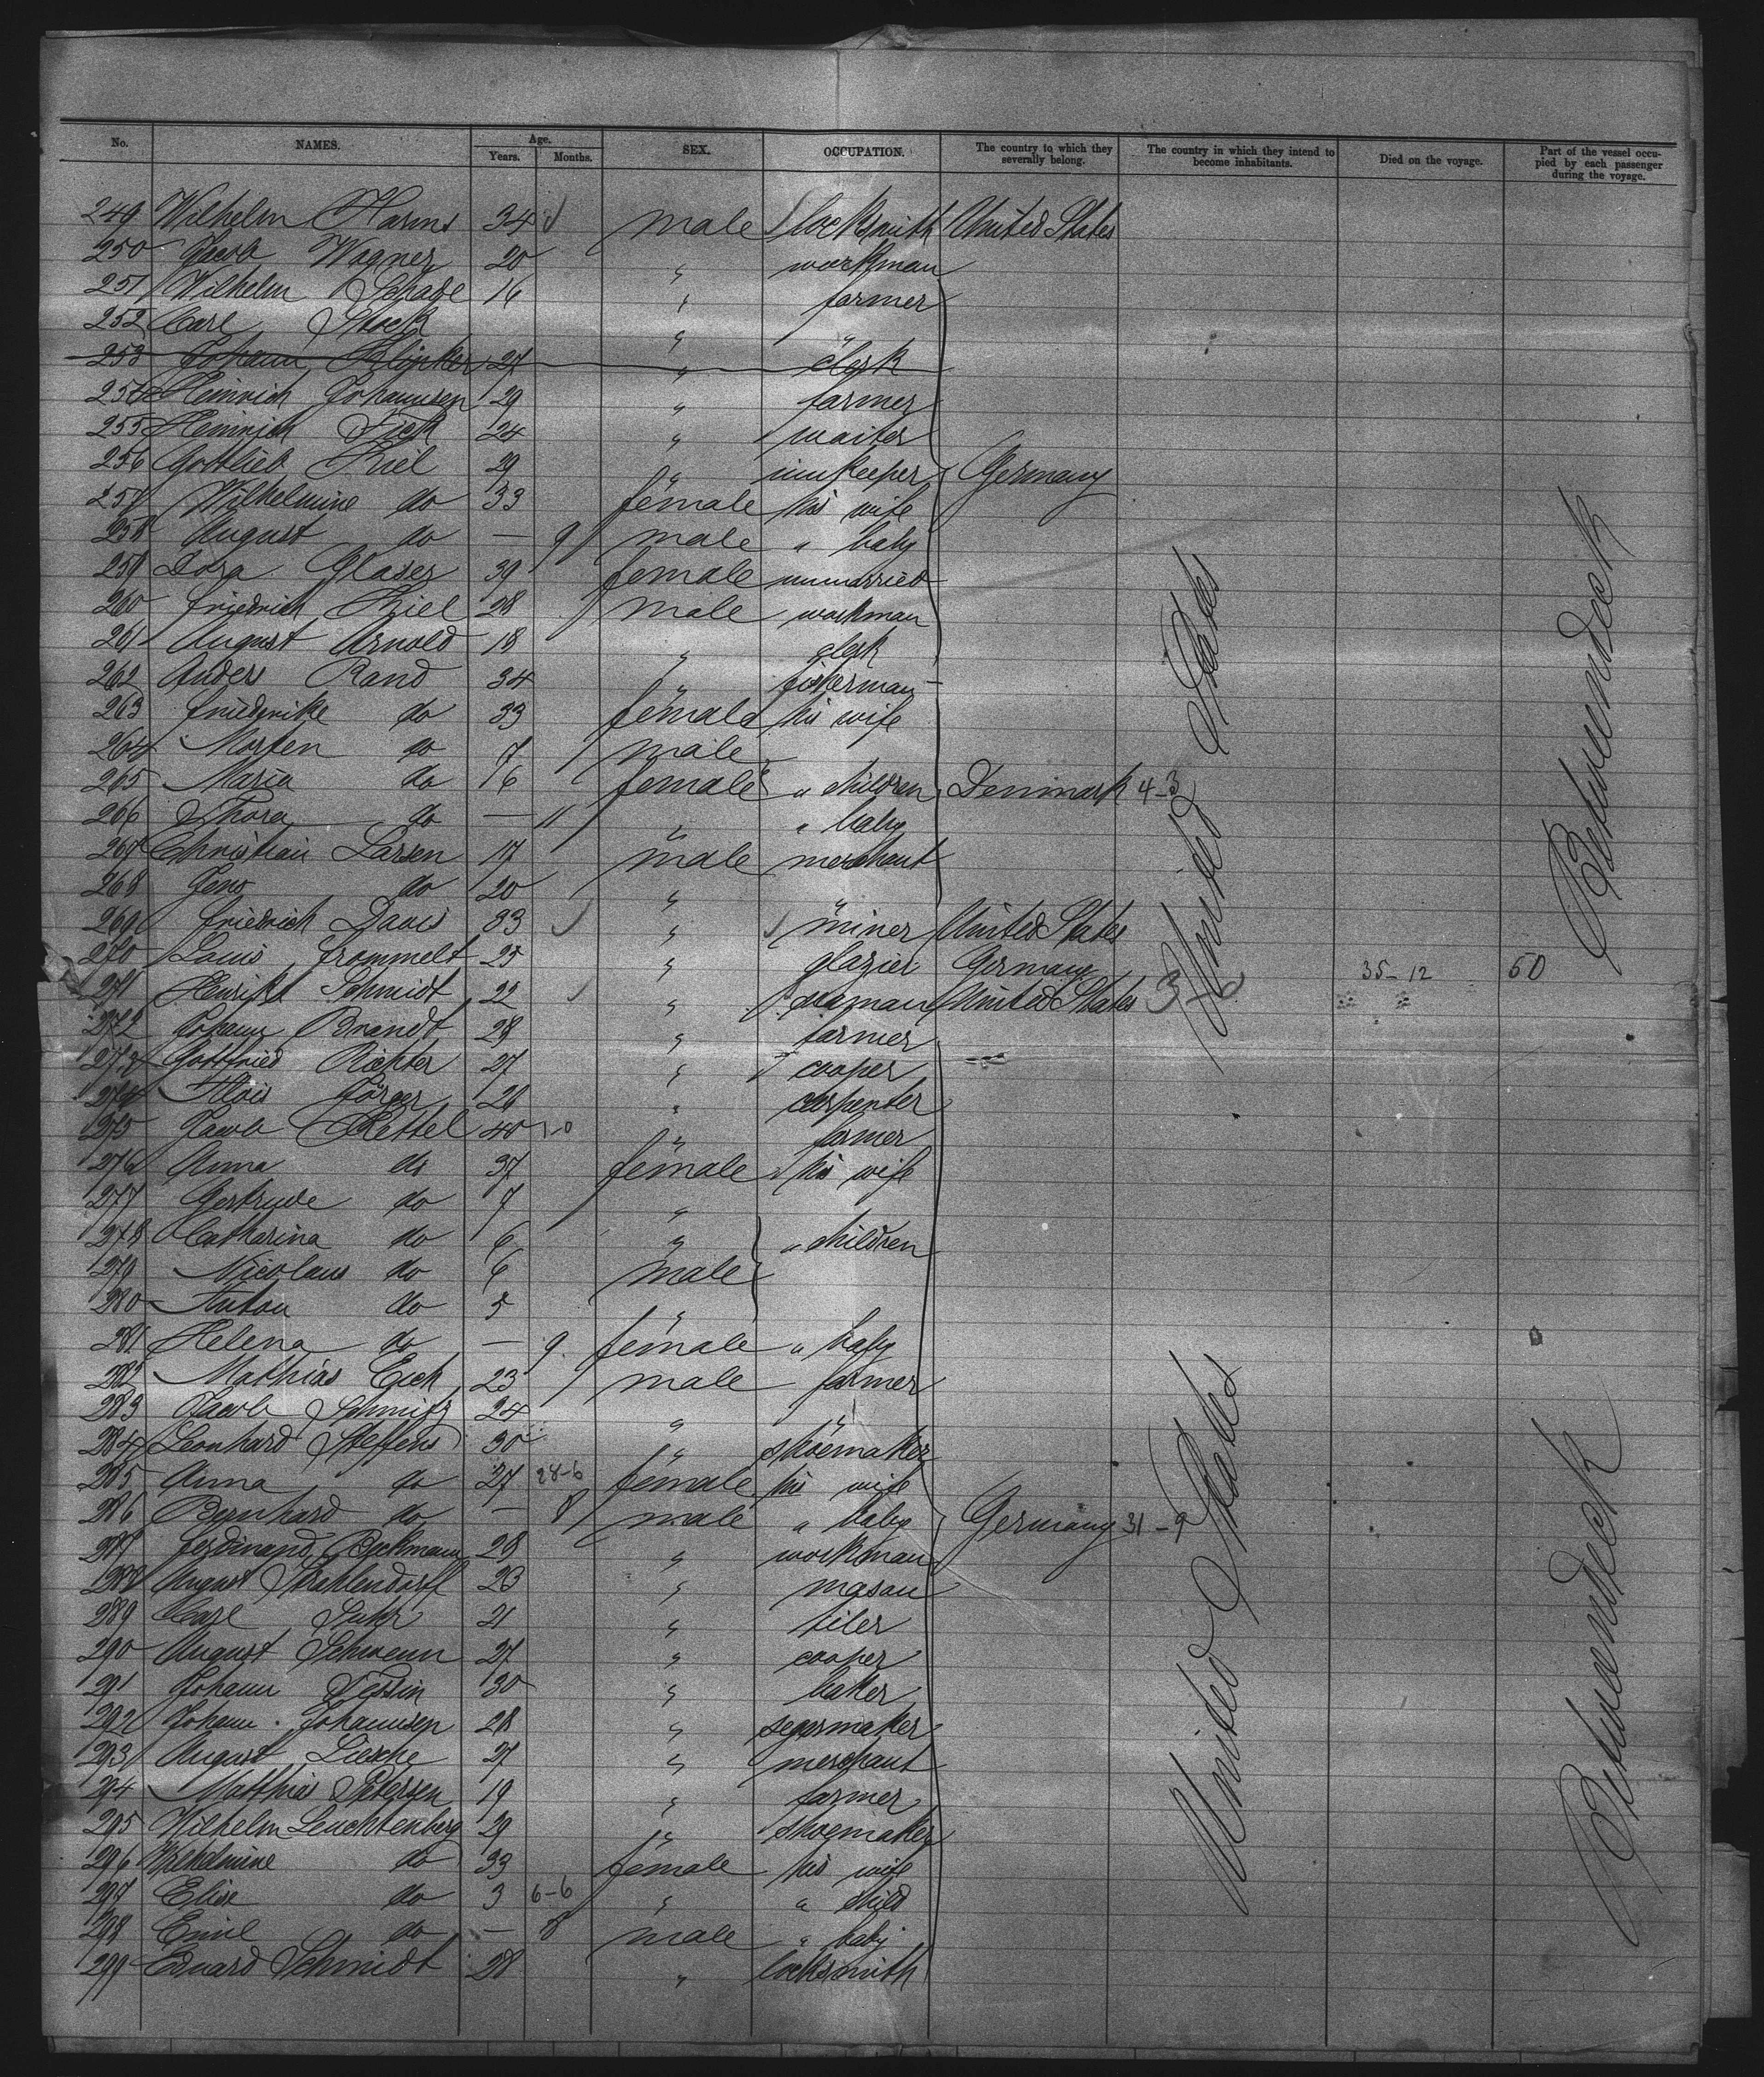 No. NAMES. Age. Years. Months. SEX. OCCUPATION. The country to which they severally belong. The country in which they intend to become inhabitants. Died on the voyage. Part of the vessel occupied by each passenger during the voyage.
249 Wilhelm Harms 34 male locksmith United States
250 Jacob Wagner 20 " workman
251 Wilhelm Schade 16 " farmer
252 Carl Stock " "
253 Johann 27 " clerk
254 Heinrich Johannsen 29 " farmer
255 Heinrich Fick 24 " waiter
256 Gottlieb Kiel 29 " innkeeper Germany
257 Wilhelmine do 33 female his wife
258 August do — 9 male " baby
259 Dora Glaser 39 female unmarried
260 Friedrich Kiel 28 male workman
261 August Arnold 18 " clerk
262 Anders Rand 34 " fisherman
263 Friederike do 33 female his wife
264 Morten do 7 male
265 Maria do 6 female " children Denmark 4-3
266 Thora do — 11 " " baby
267 Christian Larsen 17 male merchant
268 Jens do 20 " "
269 Friedrich Davis 33 " miner United States
270 Louis Frommelt 25 " glazier Germany 35-12 50
271 Schmidt 22 " seaman United States 3
272 Johann Brandt 28 " farmer
273 Gottfried Richter 27 " cooper
274 Alois 26 " carpenter
275 Jacob Kettel 40 " farmer
276 Anna do 37 female his wife
277 Gertrude do 7 "
278 Catharina do 6 " " children
279 Nicolaus do 6 male
280 Anton do 5 "
281 Helena do — 9 female " baby
282 Mathias Eich 23 male farmer
283 Jacob Schmitz 24 " "
284 Leonhard Steffens 30 " shoemaker
285 Anna do 27 28-6 female his wife
286 Bernhard do — 8 male " baby Germany 31-9
287 Ferdinand Beckmann 28 " workman
288 August Strahlendorff 23 " mason
289 Carl Suhr 21 " tiler
290 August Schwenn 27 " cooper
291 Johann Tessin 30 " baker
292 Johann Johannsen 28 " segarmaker
293 August Liesche 27 " merchant
294 Matthias Petersen 19 " farmer
295 Wilhelm Leuchtenberg 29 " shoemaker
296 Wilhelmine do 33 female his wife
297 Elise do 3 6-6 " " child
298 Emil do — 8 male " baby
299 Eduard Schmidt 28 " locksmith
United States
Betweendeck
United States
Betweendeck